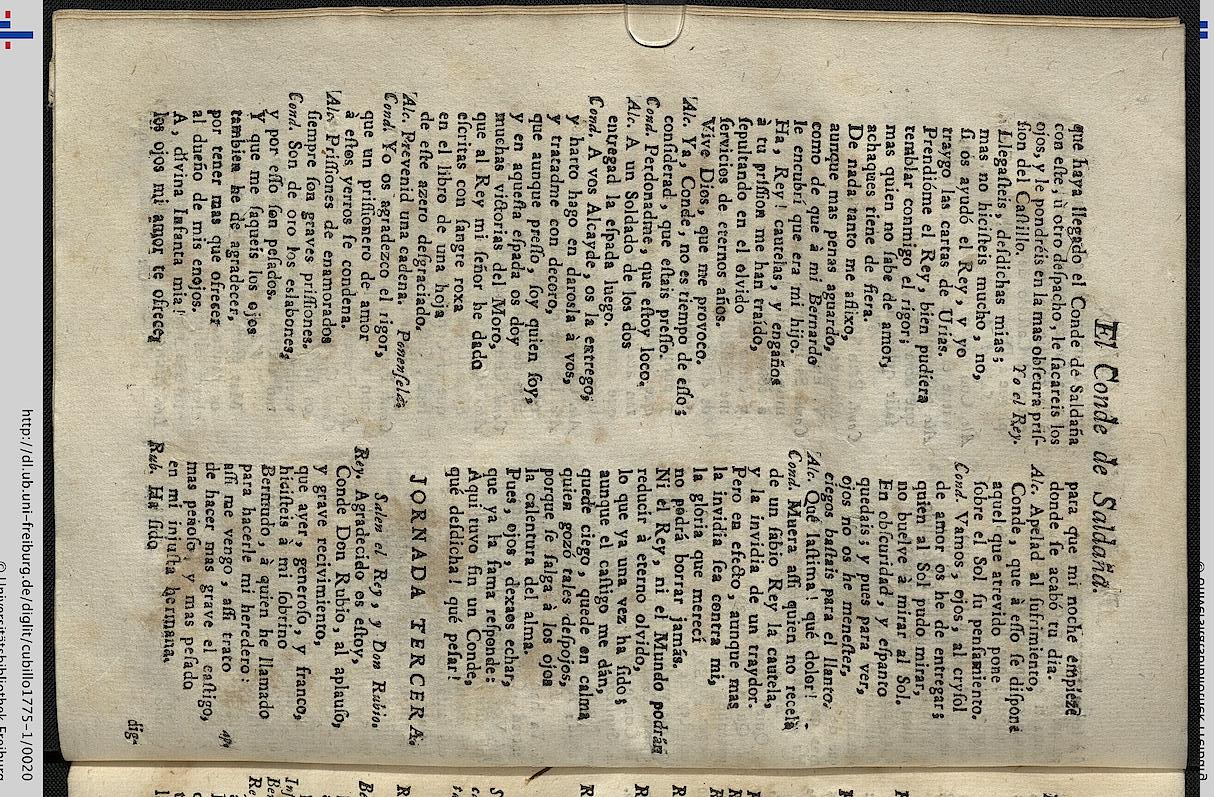 El Conde de Saldaña.
que haya llegado el Conde de Saldaña
con este, ù otro despacho, le sacareis los
ojos, y le pondréis en la mas obscura pris-
sion del Castillo. Yo el Rey.
Llegasteis, desdichas mias;
mas no hicisteis mucho, no,
si os ayudó el Rey, y yo
traygo las cartas de Urias.
Prendióme el Rey, bien pudiera
temblar conmigo el rigor;
mas quien no sabe de amor,
achaques tiene de fiera.
De nada tanto me aflixo,
aunque mas penas aguardo,
como de que à mi Bernardo
le encubrí que era mi hijo.
Ha, Rey! cautelas, y engaños
à tu prission me han traído,
sepultando en el olvido
servicios de eternos años.
Vive Dios, que me provoco.
Alc. Ya, Conde, no es tiempo de esso;
considerad, que estais presso.
Cond. Perdonadme, que estoy loco.
Alc. A un Soldado de los dos
entregad la espada luego.
Cond. A vos Alcayde, os la entrego;
y harto hago en darosla à vos,
y tratadme con decoro,
que aunque presso, soy quien soy,
y en aquesta espada os doy
muchas victorias del Moro,
que al Rey mi señor he dado
escritas con sangre roxa
en el libro de una hoja
de este azero desgraciado.
Alc. Prevenid una cadena. Ponensela.
Cond. Yo os agradezco el rigor,
que un prissionero de amor
à estos yerros se condena.
Alc. Prissiones de enamorados
siempre son graves prissiones.
Cond. Son de oro los eslabones,
y por esso son pesados.
Y que me saqueis los ojos
tambien he de agradecer,
por tener mas que ofrecer
al dueño de mis enojos.
A, divina Infanta mia!
los ojos mi amor te ofrece,
para que mi noche empieze
donde se acabó tu dia.
Alc. Apelad al sufrimiento,
Conde, que à esso se dispone
aquel que atrevido pone
sobre el Sol su pensamiento.
Cond. Vamos, ojos, al crysol
de amor os he de entregar;
quien al Sol pudo mirar,
no buelve à mirar al Sol.
En obscuridad, y espanto
quedais; y pues para ver,
ojos no os he menester,
ciegos bastais para el llanto.
Alc. Qué lastima! qué dolor!
Cond. Muera assi quien no recela
de un sábio Rey la cautela,
y la invidia de un traydor.
Pero en efecto, aunque mas
la invidia sea contra mi,
la gloria que merecí
no podrá borrar jamás.
Ni el Rey, ni el Mundo podrán
reducir à eterno olvido,
lo que ya una vez ha sido;
aunque el castigo me dán,
quede ciego, quede en calma
quien gozó tales despojos,
porque se salga à los ojos
la calentura del alma.
Pues, ojos, dexaos echar,
que ya la fama responde:
Aqui tuvo fin un Conde,
qué desdicha! qué pesar!
JORNADA TERCERA.
Salen el Rey, y Don Rubio.
Rey. Agradecido os estoy,
Conde Don Rubio, al aplauso,
y grave recivimiento,
que ayer, generoso, y franco,
hicisteis à mi sobrino
Bermudo, à quien he llamado
para hacerle mi heredero:
assi me vengo, assi trato ap.
de hacer mas grave el castigo,
mas penoso, y mas pesado
en mi injusta hermana.
Rub. Ha sido
dig-
http://dl.ub.uni-freiburg.de/diglit/cubillo1775-1/0020
© Universitätsbibliothek Freiburg